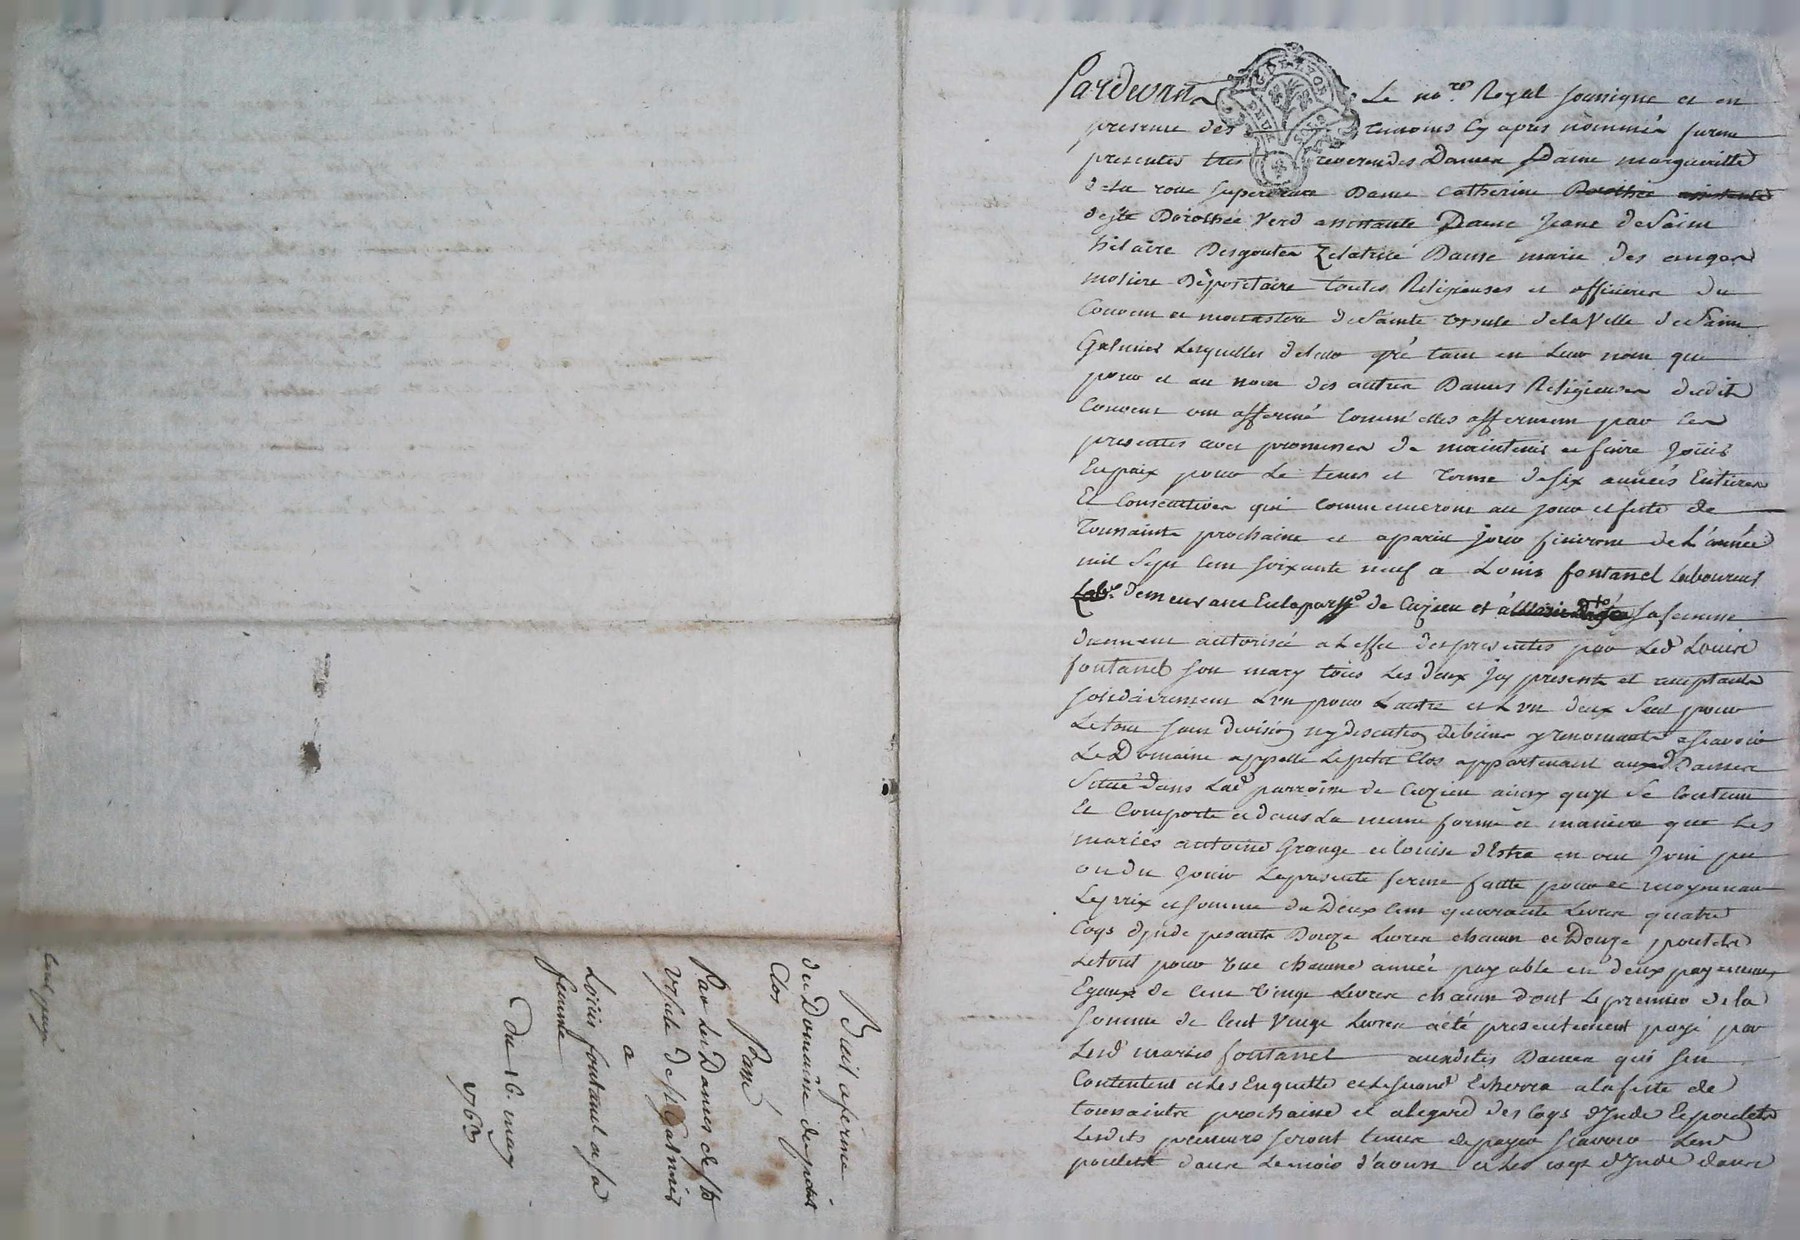 Pardevant Le no.re Royal soussigné et en
presence des temoins cy apres nommés furent
presentes tres reverendes Dames Dame margueritte
dela roue superieure Dame Catherine
Dorothée Verd assistante Dame Jeane de Saint
hilaire Desgoutes Zelatrice Dame marie des anges
moliere Dépositaire toutes Religieuses et officieres du
Couvent et monastere de Sainte Ursule dela Ville de Saint
Galmier Lesquelles de leur gré tant en Leur nom que
pour et au nom des autres Dames Religieuses dudit
Couvent ont affermé comm'elles afferment par les
presentes avec promesses de maintenir et faire Joüir
En paix pour Le tems et terme de six années Entieres
Et Consecutives qui commenceront au jour et feste de
Toussaints prochaine et a pareil jour finiront de L'année
mil Sept Cent soixante neuf a Louis fontanel laboureur
demeurant En la parsse de Cuzieu et à sa femme
duement autorisée a L'effet des presentes par Led Louis
fontanel son mary tous Les deux Icy presents et acceptants
solidairement L'un pour L'autre et L'un deux Seul pour
Le tout sans division ny discution de biens y renonceants a scavoir
Le Domaine appellé Le petit Clos appartenant auxd Dames
Situé dans Lad parroisse de Cuzieu ainsy qu'il Se Contient
Et Comporte et dans La meme forme et maniere que Les
mariés antoine Grange et Louise d'Estra en ont Joui pu
ou du Jouir La presente ferme faitte pour et moyennant
Le prix et somme de Deux Cent quarante Livres quatre
Coqs d'jnde pesants Douze Livres chacun et Douze poulets
Le tout pour une chacune année payable en deux payements
Egaux de Cent Vingt Livres chacun dont Le premier de la
somme de Cent Vingt Livres a été presentement payé par
Lesd mariés fontanel auxdites Dames qui s'en
Contentent et Les En quitte et Le second Echerra a la feste de
toussaints prochaine et a legard des Coqs d'Jnde Et poulets
Lesdits preneurs seront tenus de payer scavoir Les
poulets dans Le mois d'aoust et Les coqs d'Jnde dans
Bail a ferme
du Domaine du petit
Clos
Passé
Par Les Dames de Ste
Ursule de St Galmier
a
Loüis fontanel et sa
femme
Du 16. may
1763